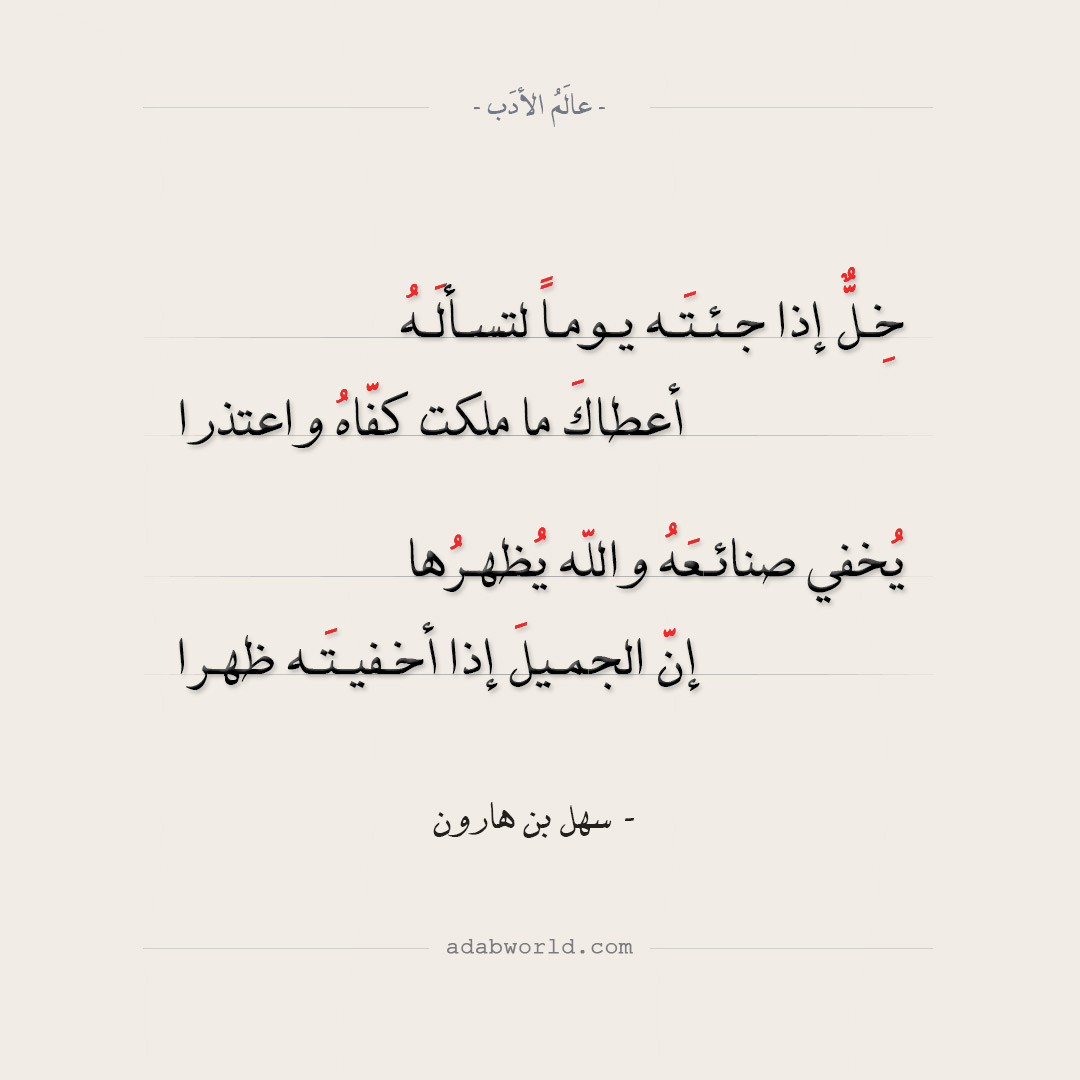 - عالَمُ الأدَب -
خِلٌّ إذا جئتَه يوماً لتسألَهُ
أعطاكَ ما ملكت كفّاهُ واعتذرا
يُخفي صنائعَهُ واللّه يُظهرُها
إنّ الجميلَ إذا أخفيتَه ظهرا
- سهل بن هارون
adabworld.com